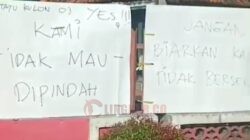 KULON 03 YES !!!
KAMI
TIDAK MAU
DIPINDAH
JANGAN
BIARKAN KA
TIDAK BERSE